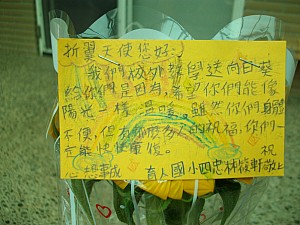 折翼天使您好:)
我們板如樂學送向日葵
給你們是因為,希望你們能像
陽光一樣溫暖。雖然你們身體
不便,但有你們及家人的祝福,你們一
定能快快重復。 祝
心想事成 育人國小四忠林筱軒敬上